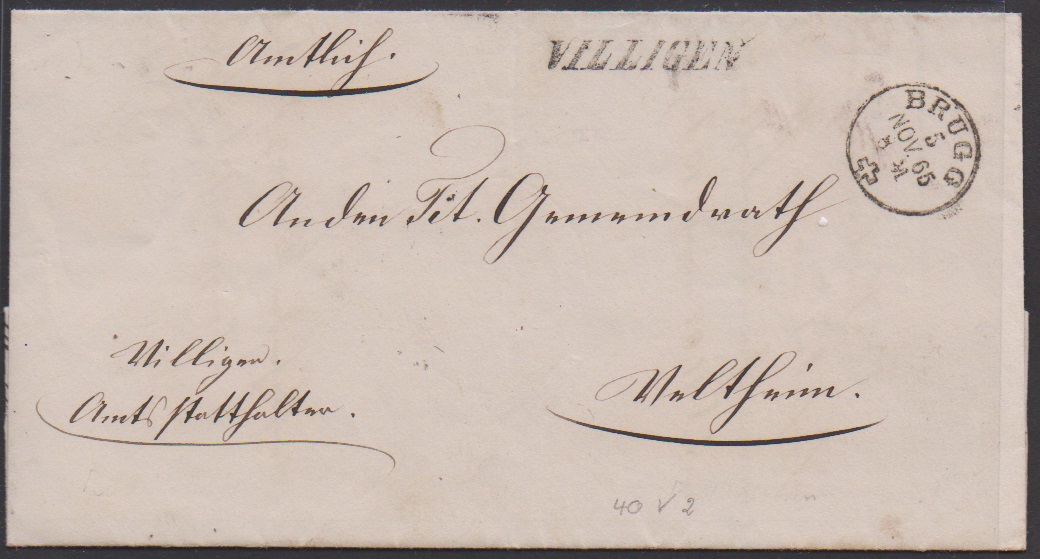 Amtlich.
VILLIGEN
BRUGG
5
NOV. 65
An den Tit. Gemeindrath
Villigen.
Amtsstatthalter.
Veltheim.
40 V 2